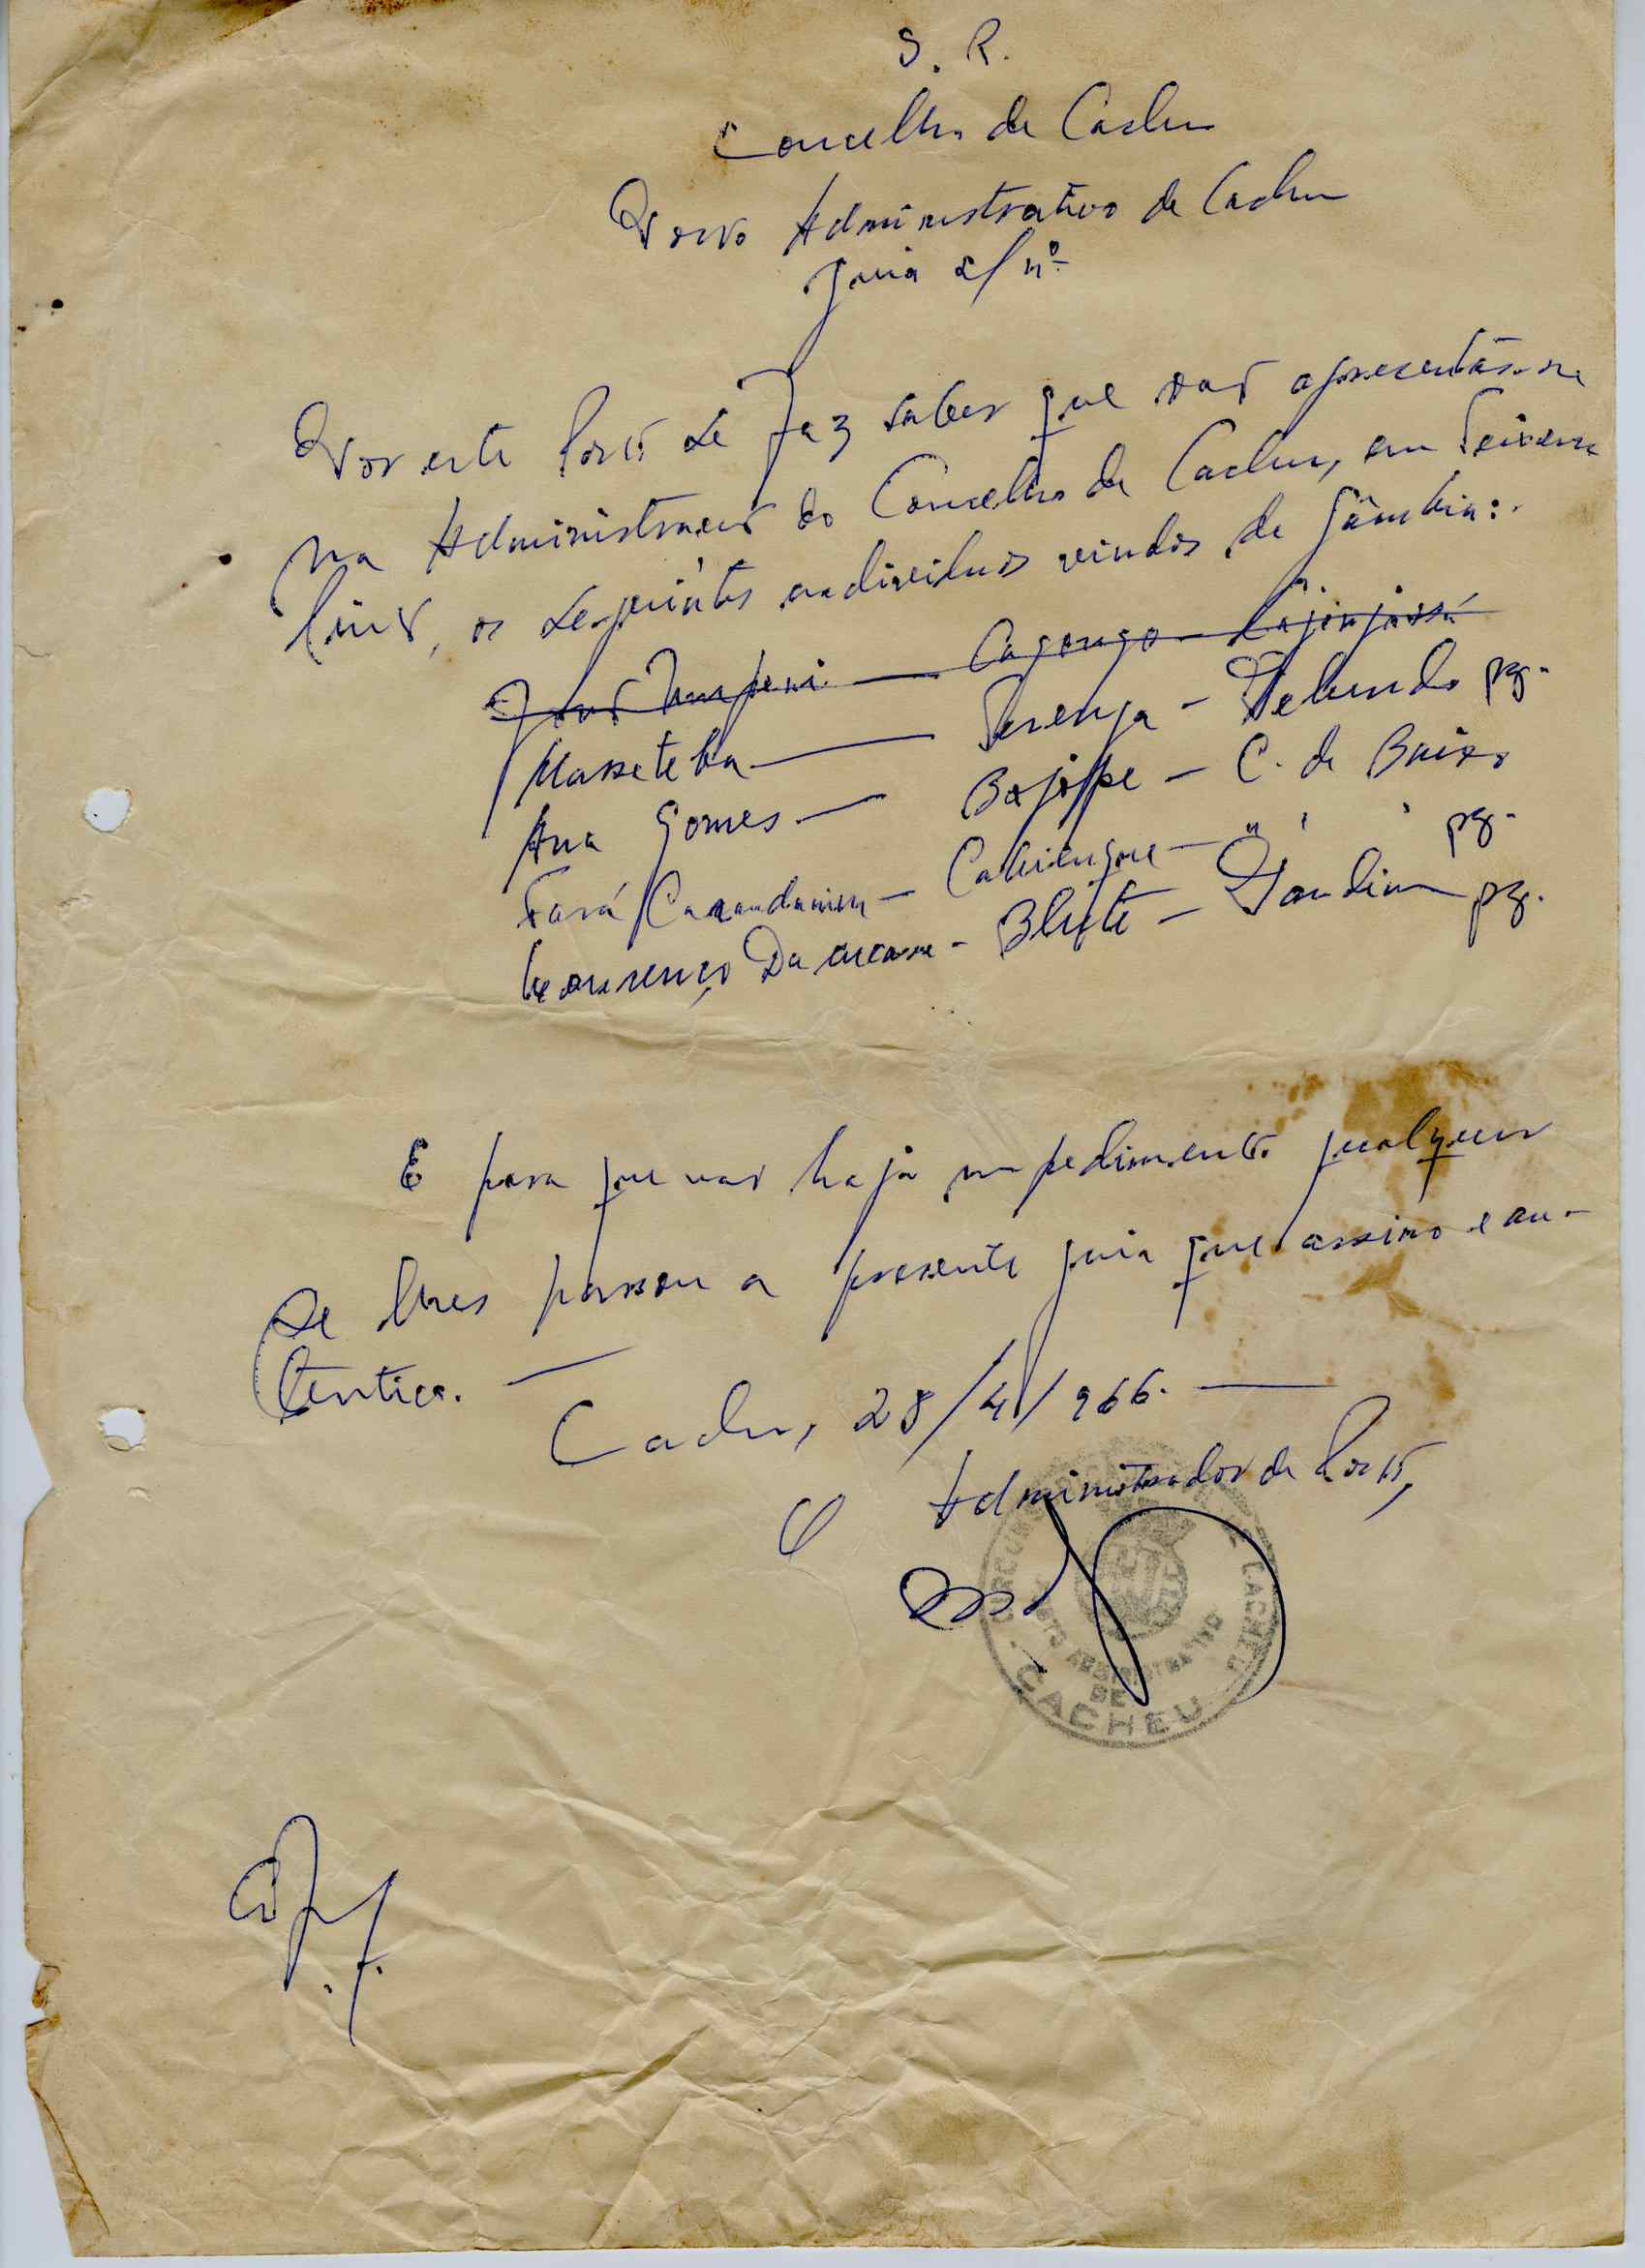 S. R.
Concelho de Cacheu
Posto Administrativo de Cacheu
Guia s/ nº
Por este Posto se faz saber que vão apresentar-se
na Administração do Concelho de Cacheu, em Teixeira
Pinto, os seguintes individuos vindos de Gâmbia:
Cagongo -
Masseteba — - Pelundo pg.
Ana Gomes — Bajope - C. de Baixo
Fará - " " " pg.
Lourenço - - Jandim pg.
E para que não haja impedimento qualquer
se lhes passou a presente guia que assino e au-
tentico. —
Cacheu, 28/4/966. —
O Administrador de Posto,
CIRCUNSCRIÇÃO DE CACHEU
POSTO ADMINISTRATIVO
DE
CACHEU